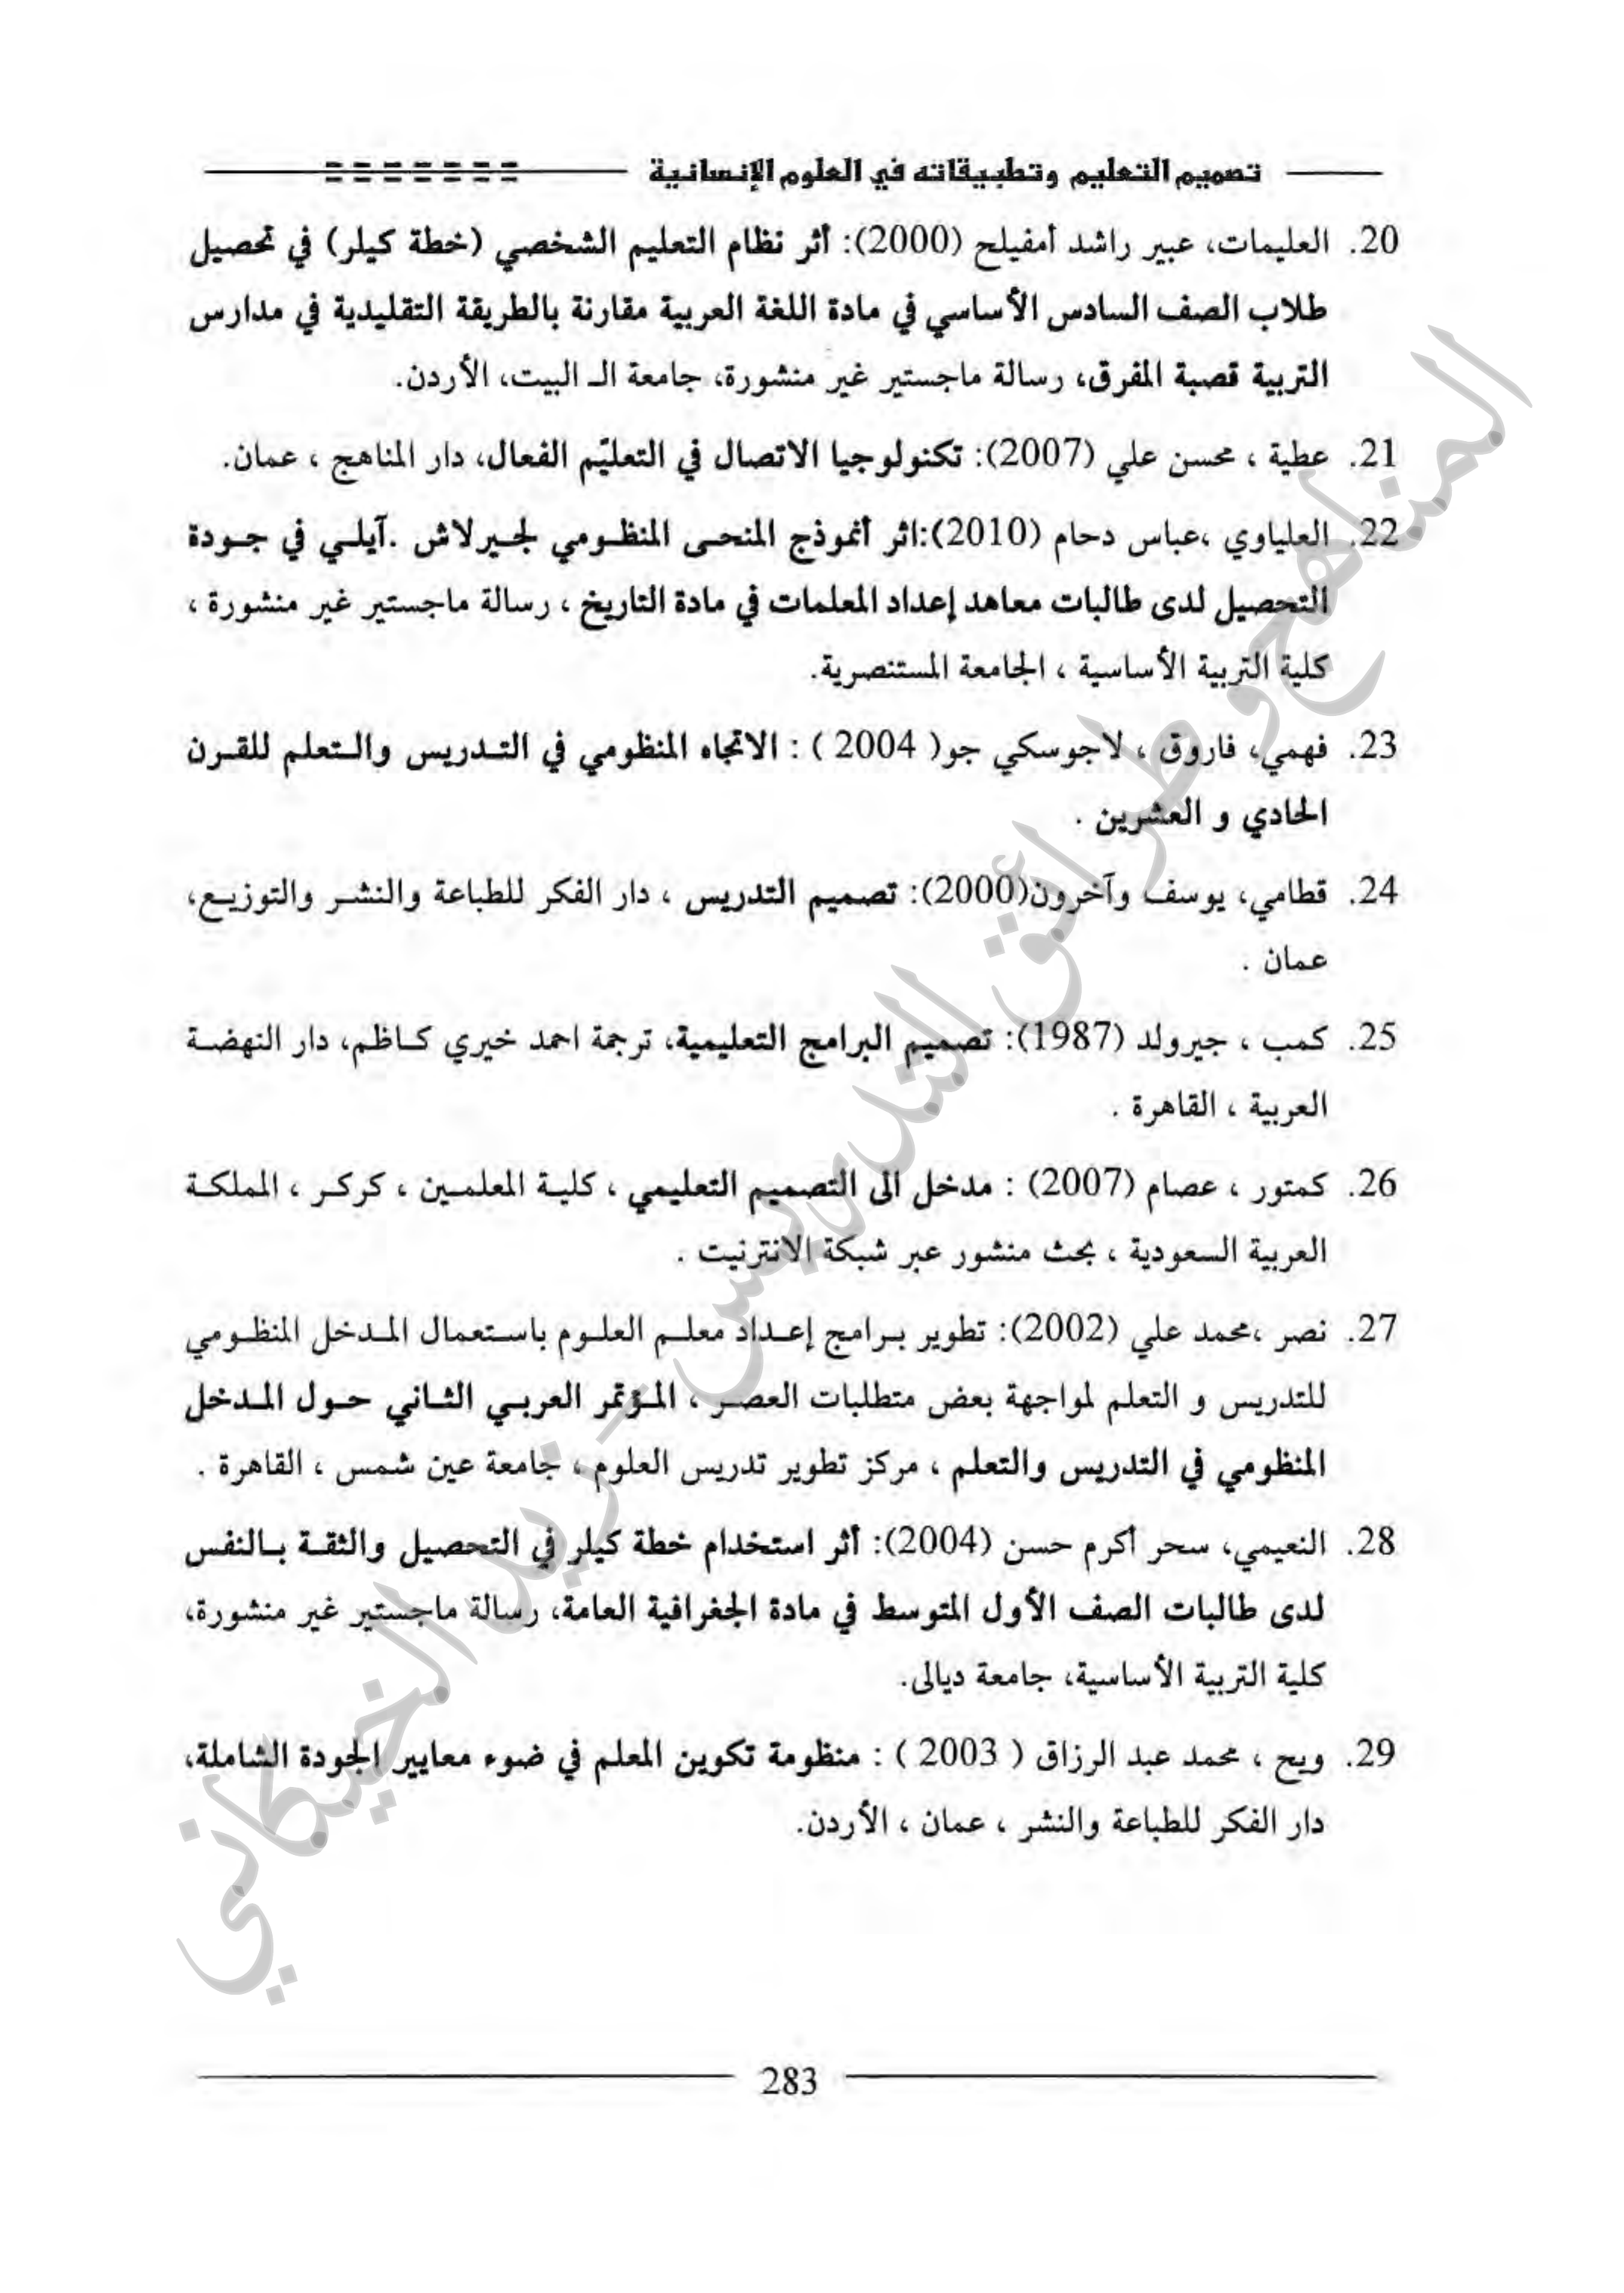 تصميم التعليم وتطبيقاته في العلوم الإنسانية
20. العليمات، عبير راشد أمفيلح (2000): أثر نظام التعليم الشخصي (خطة كيلر) في تحصيل
طلاب الصف السادس الأساسي في مادة اللغة العربية مقارنة بالطريقة التقليدية في مدارس
التربية قصبة المفرق، رسالة ماجستير غير منشورة، جامعة الـ البيت، الأردن.
21. عطية ، محسن علي (2007): تكنولوجيا الاتصال في التعليّم الفعال، دار المناهج ، عمان.
22. العلياوي ،عباس دحام (2010):اثر أنموذج المنحى المنظومي لجيرلاش .آيلي في جودة
التحصيل لدى طالبات معاهد إعداد المعلمات في مادة التاريخ ، رسالة ماجستير غير منشورة ،
كلية التربية الأساسية ، الجامعة المستنصرية.
23. فهمي، فاروق ، لاجوسكي جو( 2004 ) : الاتجاه المنظومي في التدريس والتعلم للقرن
الحادي و العشرين .
24. قطامي، يوسف وآخرون(2000): تصميم التدريس ، دار الفكر للطباعة والنشر والتوزيع،
عمان .
25. كمب ، جيرولد (1987): تصميم البرامج التعليمية، ترجمة احمد خيري كاظم، دار النهضة
العربية ، القاهرة .
26. كمتور ، عصام (2007) : مدخل الى التصميم التعليمي ، كلية المعلمين ، كركر ، المملكة
العربية السعودية ، بحث منشور عبر شبكة الانترنيت .
27. نصر ،محمد علي (2002): تطوير برامج إعداد معلم العلوم باستعمال المدخل المنظومي
للتدريس و التعلم لمواجهة بعض متطلبات العصر ، المؤتمر العربي الثاني حول المدخل
المنظومي في التدريس والتعلم ، مركز تطوير تدريس العلوم ، جامعة عين شمس ، القاهرة .
28. النعيمي، سحر أكرم حسن (2004): أثر استخدام خطة كيلر في التحصيل والثقة بالنفس
لدى طالبات الصف الأول المتوسط في مادة الجغرافية العامة، رسالة ماجستير غير منشورة،
كلية التربية الأساسية، جامعة ديالى.
29. ويح ، محمد عبد الرزاق ( 2003 ) : منظومة تكوين المعلم في ضوء معايير الجودة الشاملة،
دار الفكر للطباعة والنشر ، عمان ، الأردن.
283
المناهج وطرائق التدريس - زيد الخيكاني